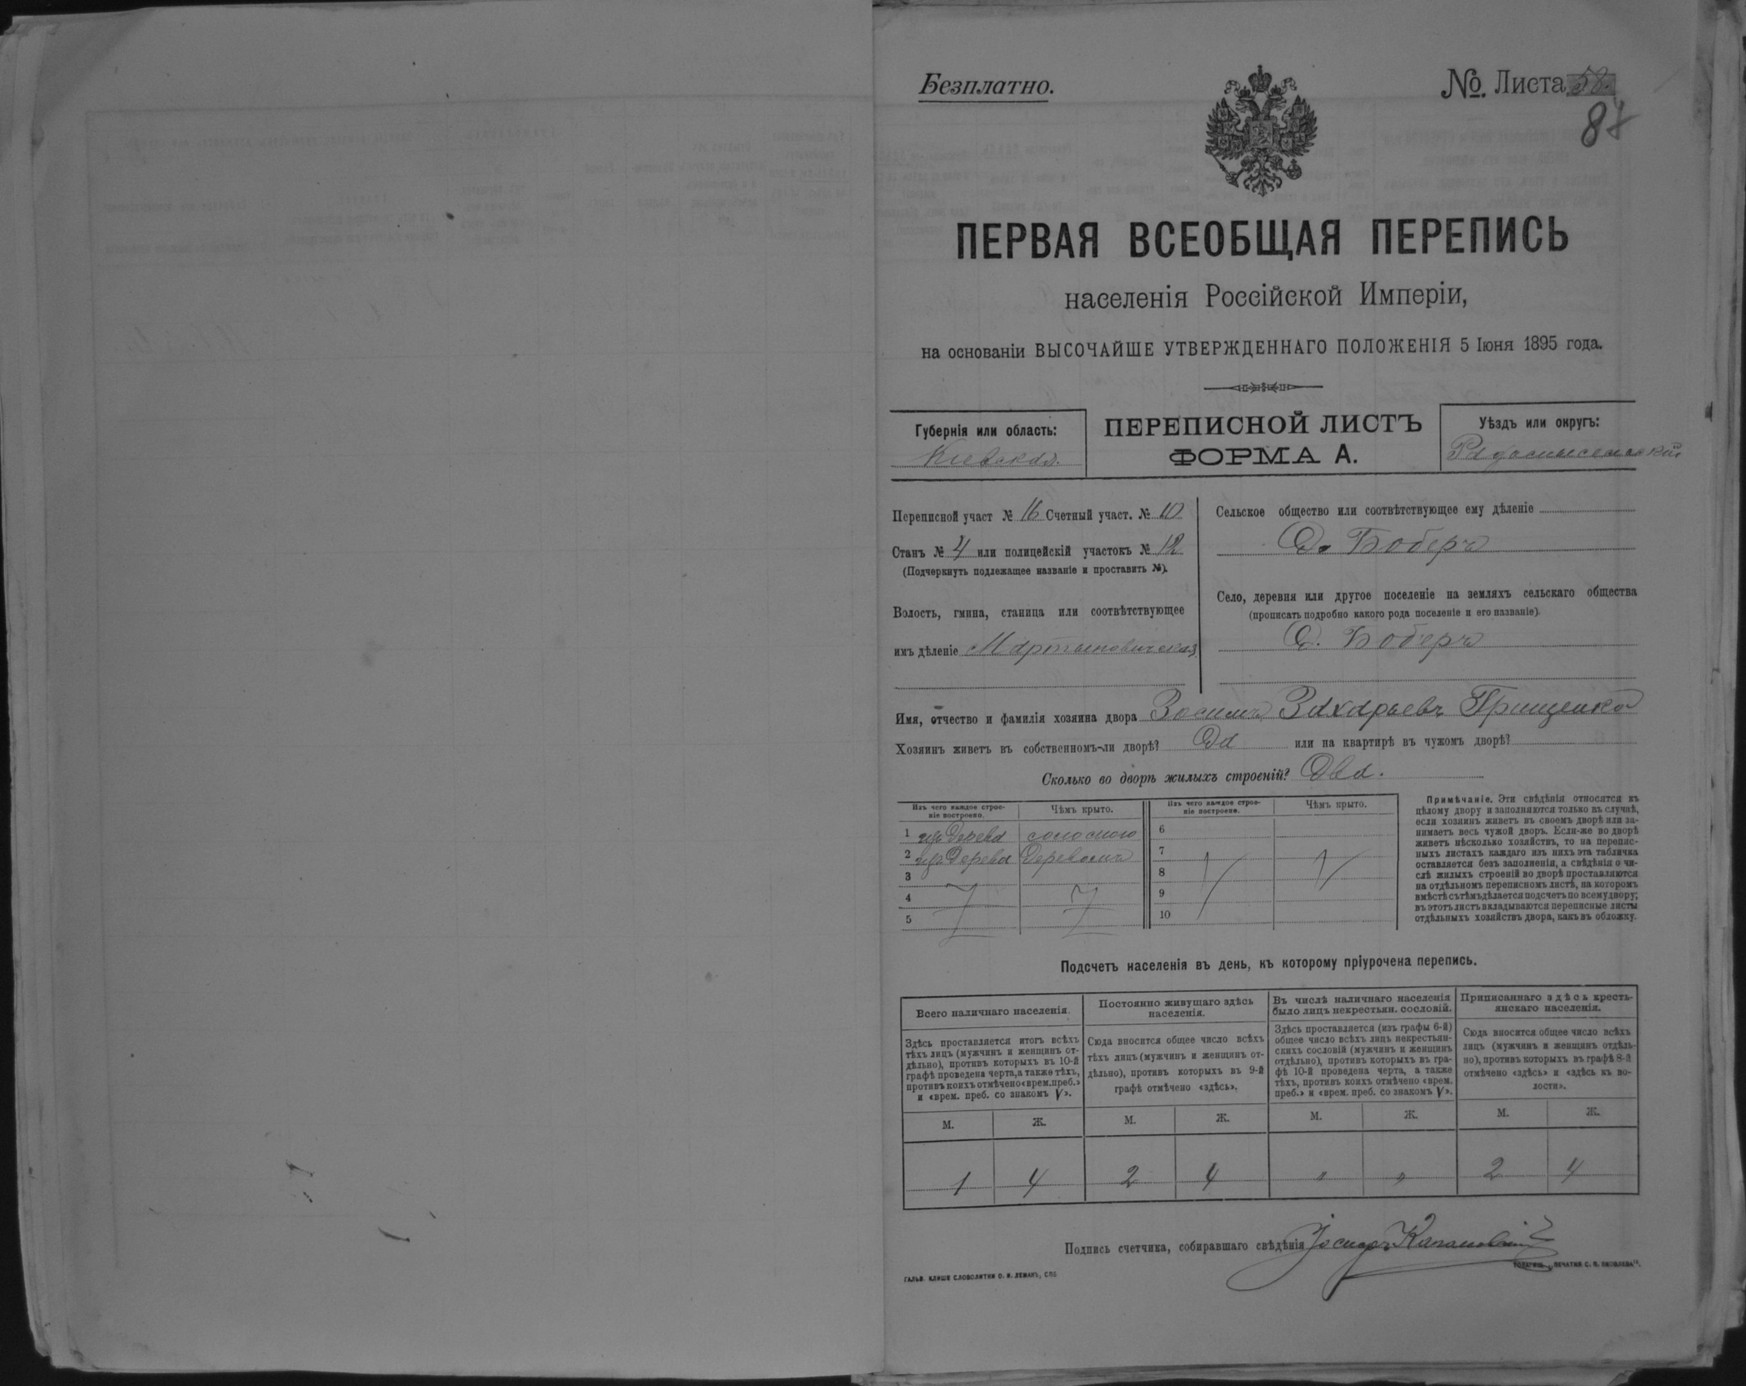 Безплатно.
№. Листа 58.
ПЕРВАЯ ВСЕОБЩАЯ ПЕРЕПИСЬ
населенія Россійской Имперіи,
на основаніи ВЫСОЧАЙШЕ УТВЕРЖДЕННАГО ПОЛОЖЕНІЯ 5 Іюня 1895 года.
Губернія или область:
Кіевская.
ПЕРЕПИСНОЙ ЛИСТЪ
ФОРМА А.
Уѣздъ или округъ:
Радомысльскій
Переписной участ № 16 Счетный участ. № 10
Станъ № 4 или полицейскій участокъ № 12
(Подчеркнуть подлежащее названіе и проставить №).
Волость, гмина, станица или соотвѣтствующее
имъ дѣленіе Мартыновичская
Сельское общество или соотвѣтствующее ему дѣленіе
Боберъ
Село, деревня или другое поселеніе на земляхъ сельскаго общества
(прописать подробно какого рода поселеніе и его названіе).
Боберъ
Имя, отчество и фамилія хозяина двора Зосимъ Захарьевъ Прищенко
Хозяинъ живетъ въ собственномъ-ли дворѣ? Да или на квартирѣ въ чужомъ дворѣ?
Сколько во дворѣ жилыхъ строеній? Два.
Изъ чего каждое строеніе построено. Чѣмъ крыто.
1 изъ дерева соломою
2 изъ дерева деревомъ
3
4
5
Изъ чего каждое строеніе построено. Чѣмъ крыто.
6
7
8
9
10
Примѣчаніе. Эти свѣдѣнія относятся къ
цѣлому двору и заполняются только въ случаѣ,
если хозяинъ живетъ въ своемъ дворѣ или за-
нимаетъ весь чужой дворъ. Если-же во дворѣ
живетъ нѣсколько хозяйствъ, то на перепис-
ныхъ листахъ каждаго изъ нихъ эта табличка
оставляется безъ заполненія, а свѣдѣнія о чи-
слѣ жилыхъ строеній во дворѣ проставляются
на отдѣльномъ переписномъ листѣ, на которомъ
вмѣстѣ съ тѣмъ дѣлается подсчетъ по всему двору;
въ этотъ листъ вкладываются переписные листы
отдѣльныхъ хозяйствъ двора, какъ въ обложку.
Подсчетъ населенія въ день, къ которому пріурочена перепись.
Всего наличнаго населенія.
Здѣсь проставляется итогъ всѣхъ
тѣхъ лицъ (мужчинъ и женщинъ от-
дѣльно), противъ которыхъ въ 10-й
графѣ проведена черта, а также тѣхъ,
противъ коихъ отмѣчено «врем. преб.»
и «врем. преб. со знакомъ V».
М. Ж.
1 4
Постоянно живущаго здѣсь
населенія.
Сюда вносится общее число всѣхъ
тѣхъ лицъ (мужчинъ и женщинъ от-
дѣльно), противъ которыхъ въ 9-й
графѣ отмѣчено «здѣсь».
М. Ж.
2 4
Въ числѣ наличнаго населенія
было лицъ некрестьян. сословій.
Здѣсь проставляется (изъ графы 6-й)
общее число всѣхъ лицъ некрестьян-
скихъ сословій (мужчинъ и женщинъ
отдѣльно), противъ которыхъ въ гра-
фѣ 10-й проведена черта, а также
тѣхъ, противъ коихъ отмѣчено «врем.
преб.» и «врем. преб. со знакомъ V».
М. Ж.
" "
Приписаннаго здѣсь кресть-
янскаго населенія.
Сюда вносится общее число всѣхъ
лицъ (мужчинъ и женщинъ отдѣль-
но), противъ которыхъ въ графѣ 8-й
отмѣчено «здѣсь» и «здѣсь въ во-
лости».
М. Ж.
2 4
Подпись счетчика, собиравшаго свѣдѣнія
ГАЛЬВ. КЛИШЕ СЛОВОЛИТНИ О. И. ЛЕМАНЪ, СПБ
ПЕЧАТНЯ С. П. ЯКОВЛЕВА